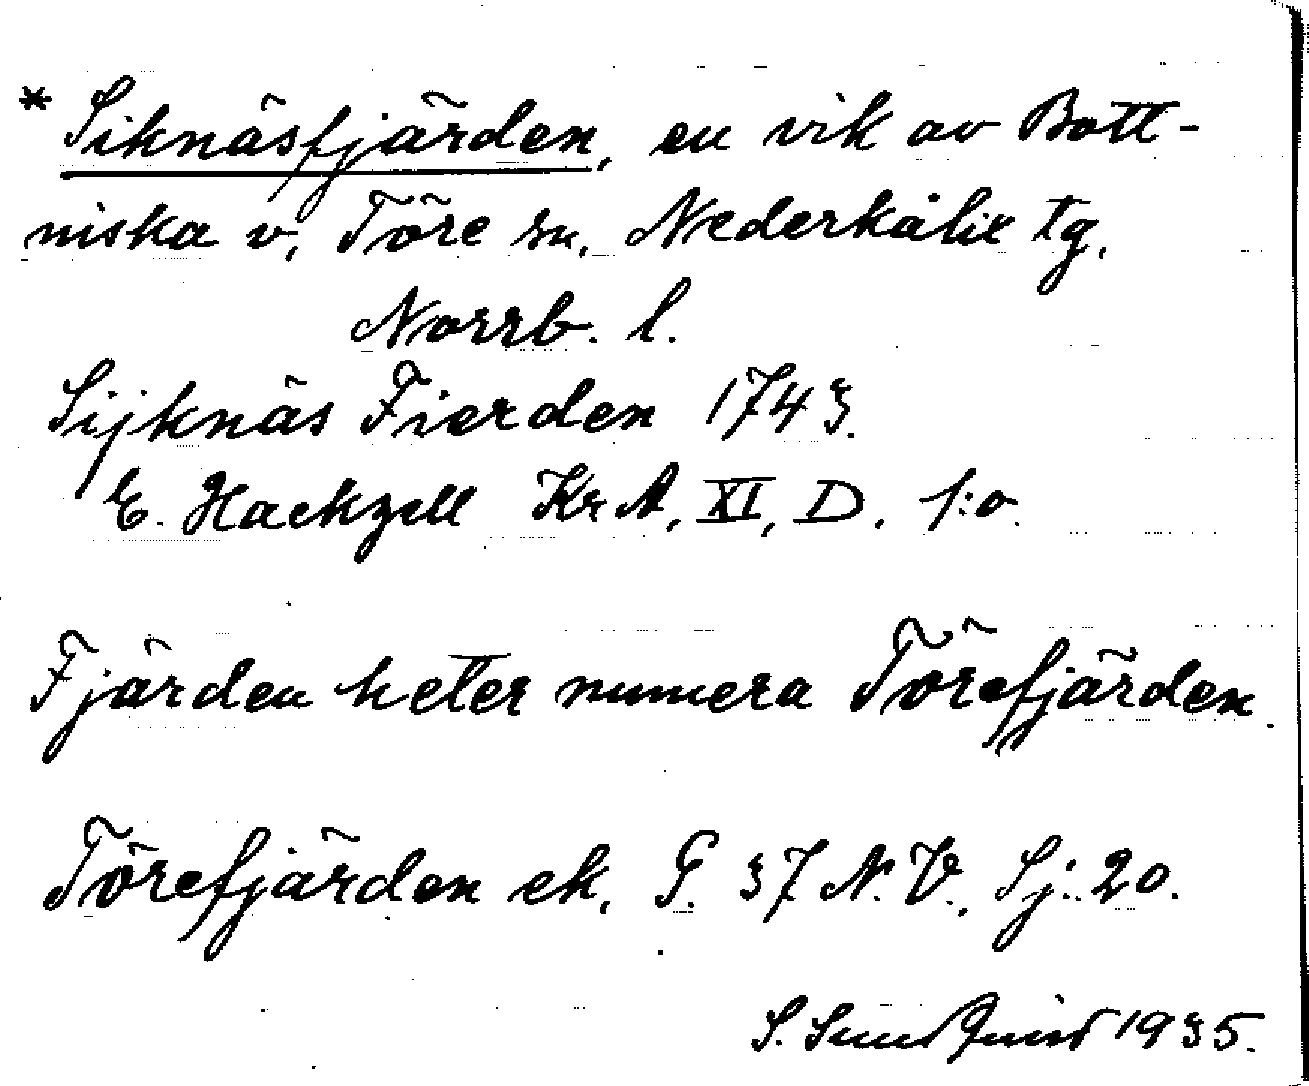 * Siknäsfjärden, en vik av Bott-
niska v, Töre sn, Nederkalix tg,
Norrb. l.
Sijknäs Fierden 1743.
E. Hackzell KrA, XI, D. 1:o.
Fjärden heter numera Törefjärden.
Törefjärden ek, G. 37 N.V., Sj: 20.
S. Sundquist 1935.